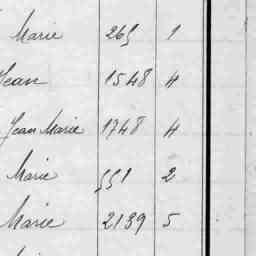 Marie 265 1
Jean 1548 4
Jean Marie 1748 4
Marie 551 2
Marie 2139 5